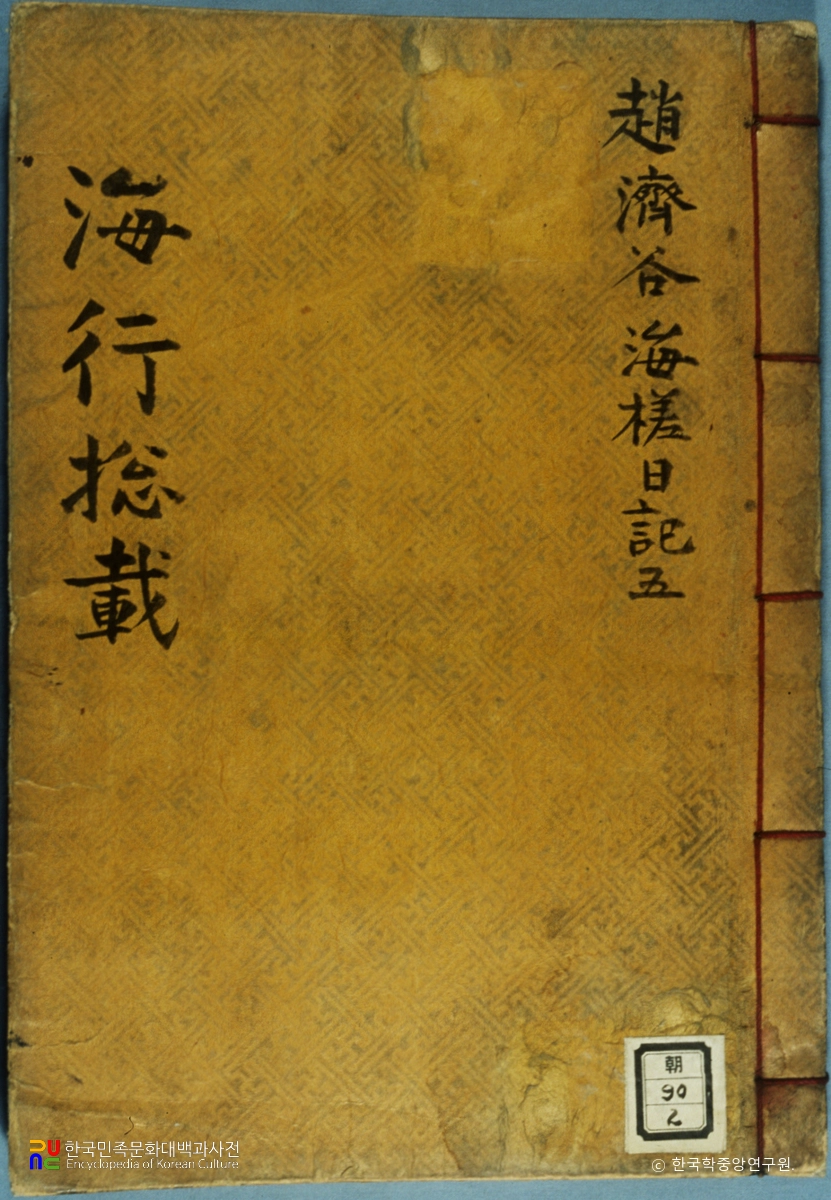 趙濟谷海槎日記五
海行捴載
朝
90
2
한국민족문화대백과사전
Encyclopedia of Korean Culture
© 한국학중앙연구원